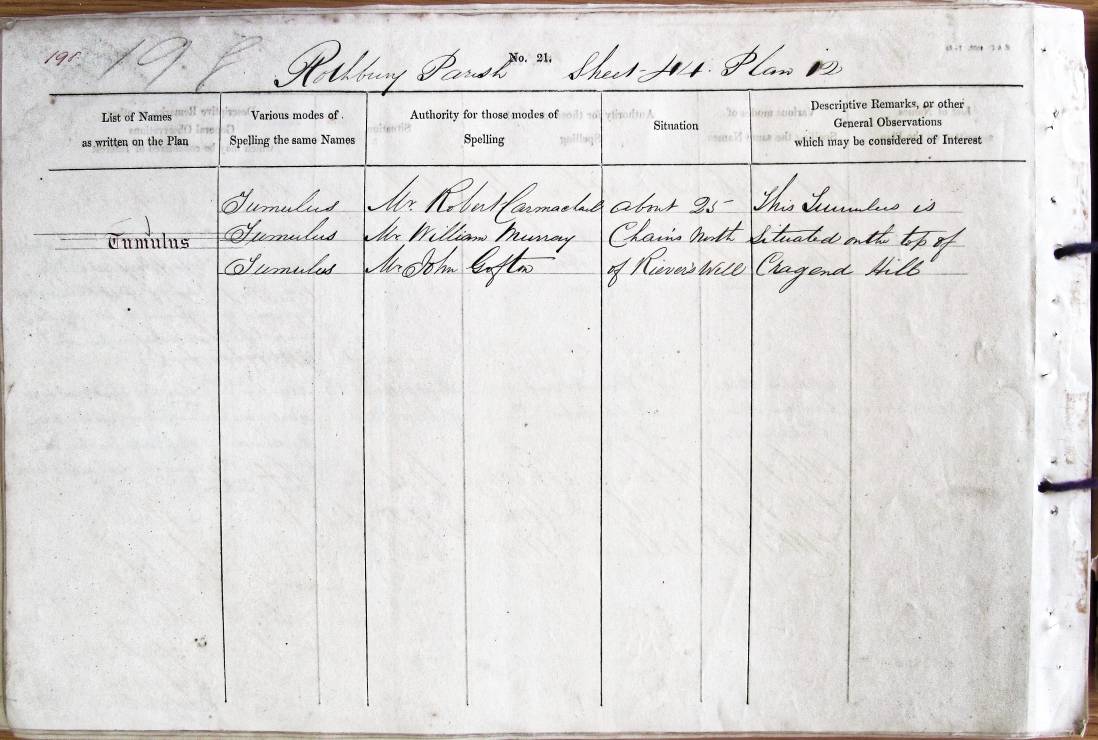 198 198
No. 21.
Rothbury Parish Sheet 44. Plan 12
List of Names as written on the Plan
Various modes of Spelling the same Names
Authority for those modes of Spelling
Situation
Descriptive Remarks, or other General Observations which may be considered of Interest
Tumulus Mr. Robert Carmachael about 25 This Tumulus is
Tumulus Tumulus Mr William Murray Chains North Situated on the top of
Tumulus Mr John Gofton of Riever's Well Cragend Hill